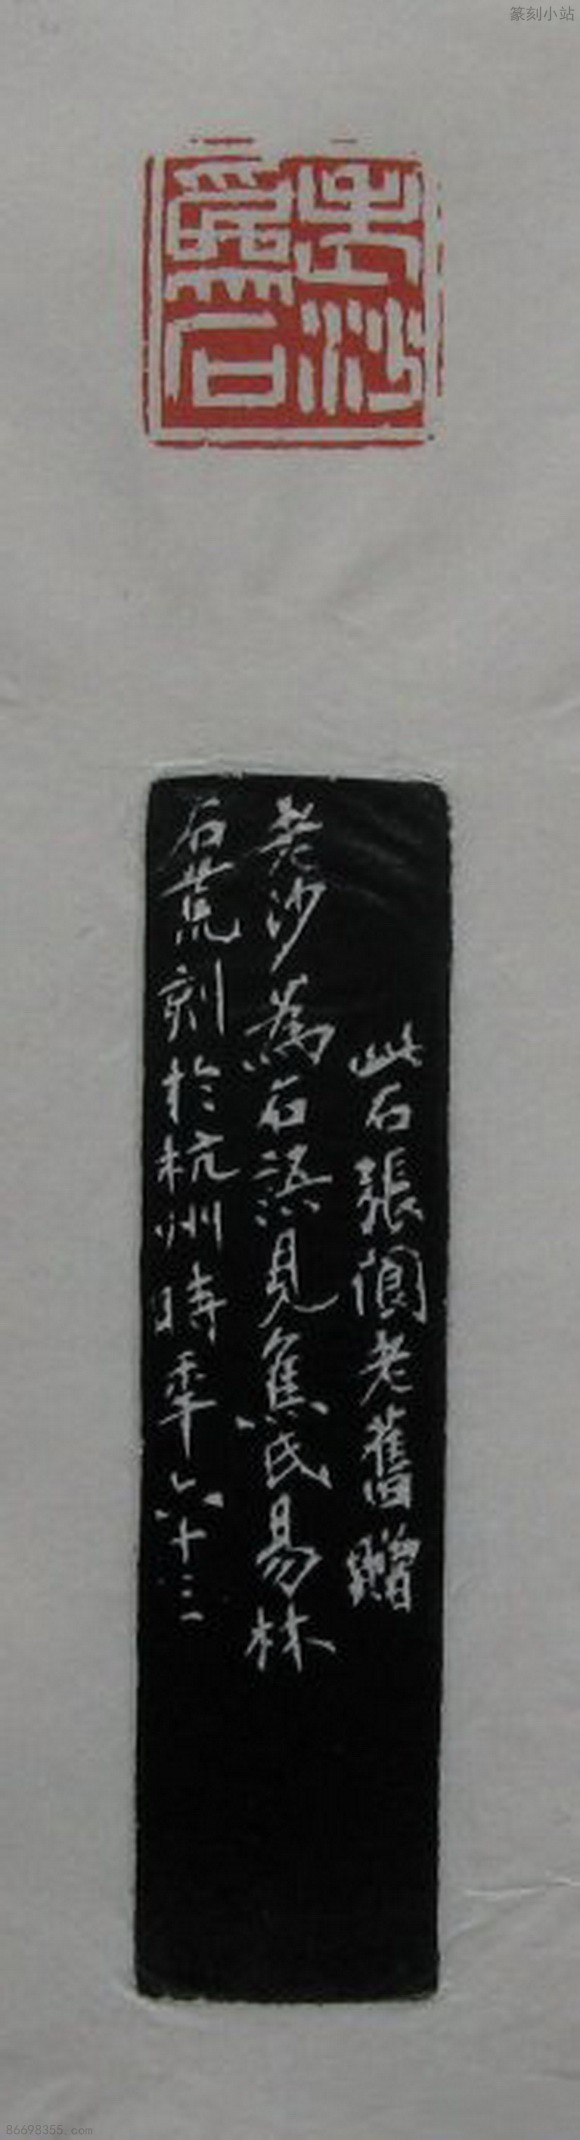 篆刻小站
老沙
為石
此石張閬老舊贈
老沙為石語見焦氏易林
石荒刻於杭州時年六十三
86698355.com